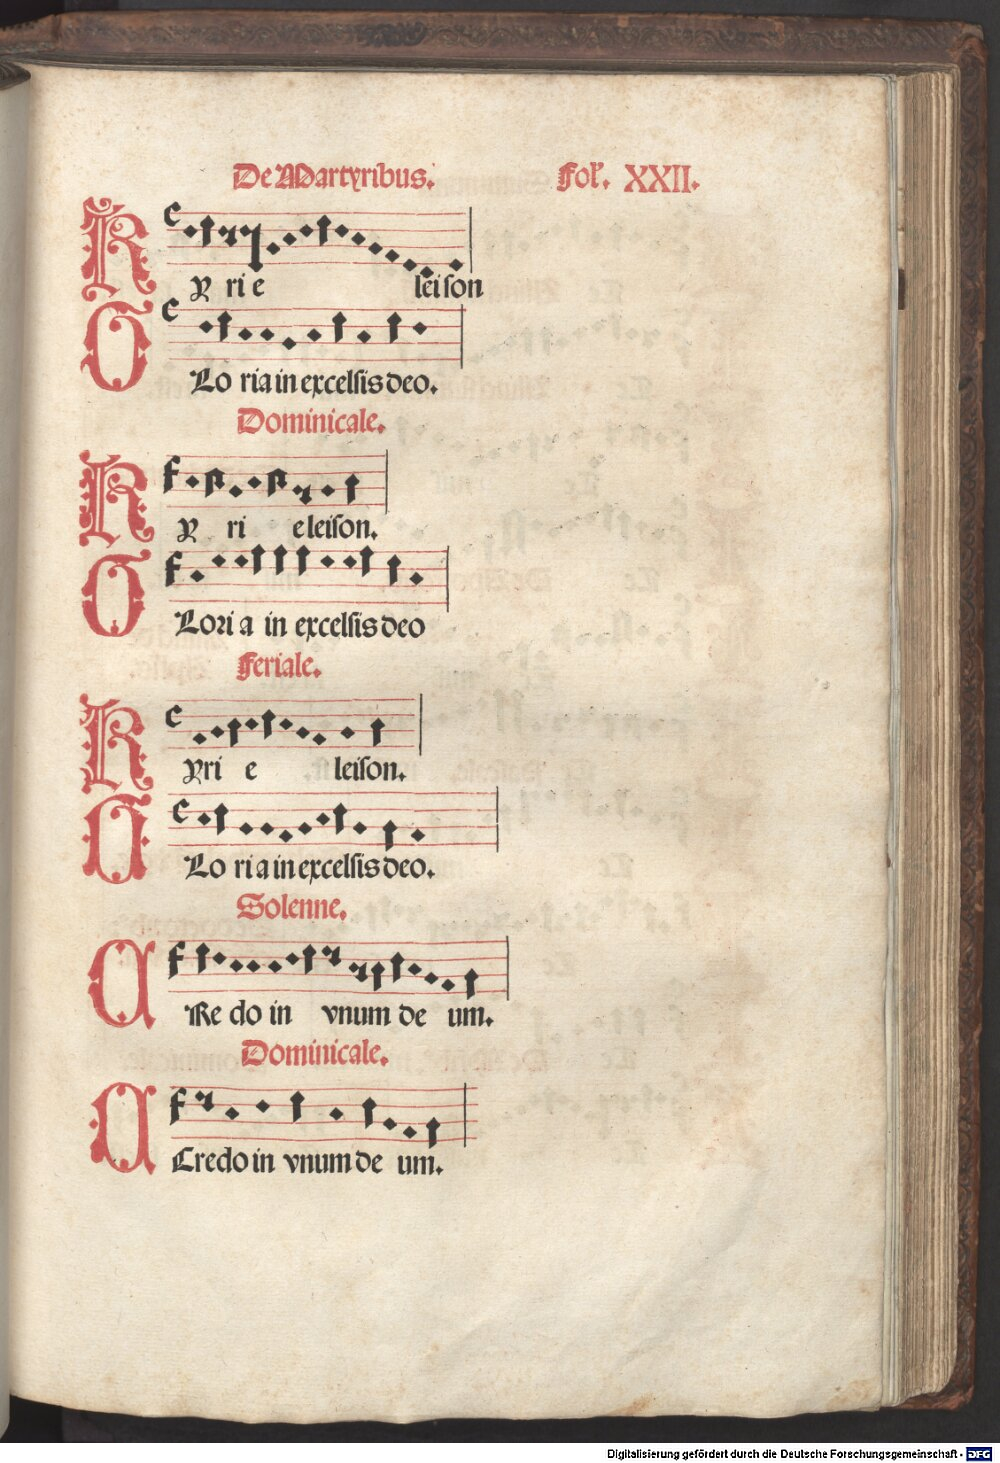 De Martyribus. Fol. XXII.
KYrieleison
GLoria in excelsis deo.
Dominicale.
KYrieleison.
GLoria in excelsis deo
Feriale.
KYrieleison.
GLoria in excelsis deo.
Solenne.
CRedo in vnum deum.
Dominicale.
CCredo in vnum deum.
Digitalisierung gefördert durch die Deutsche Forschungsgemeinschaft - DFG